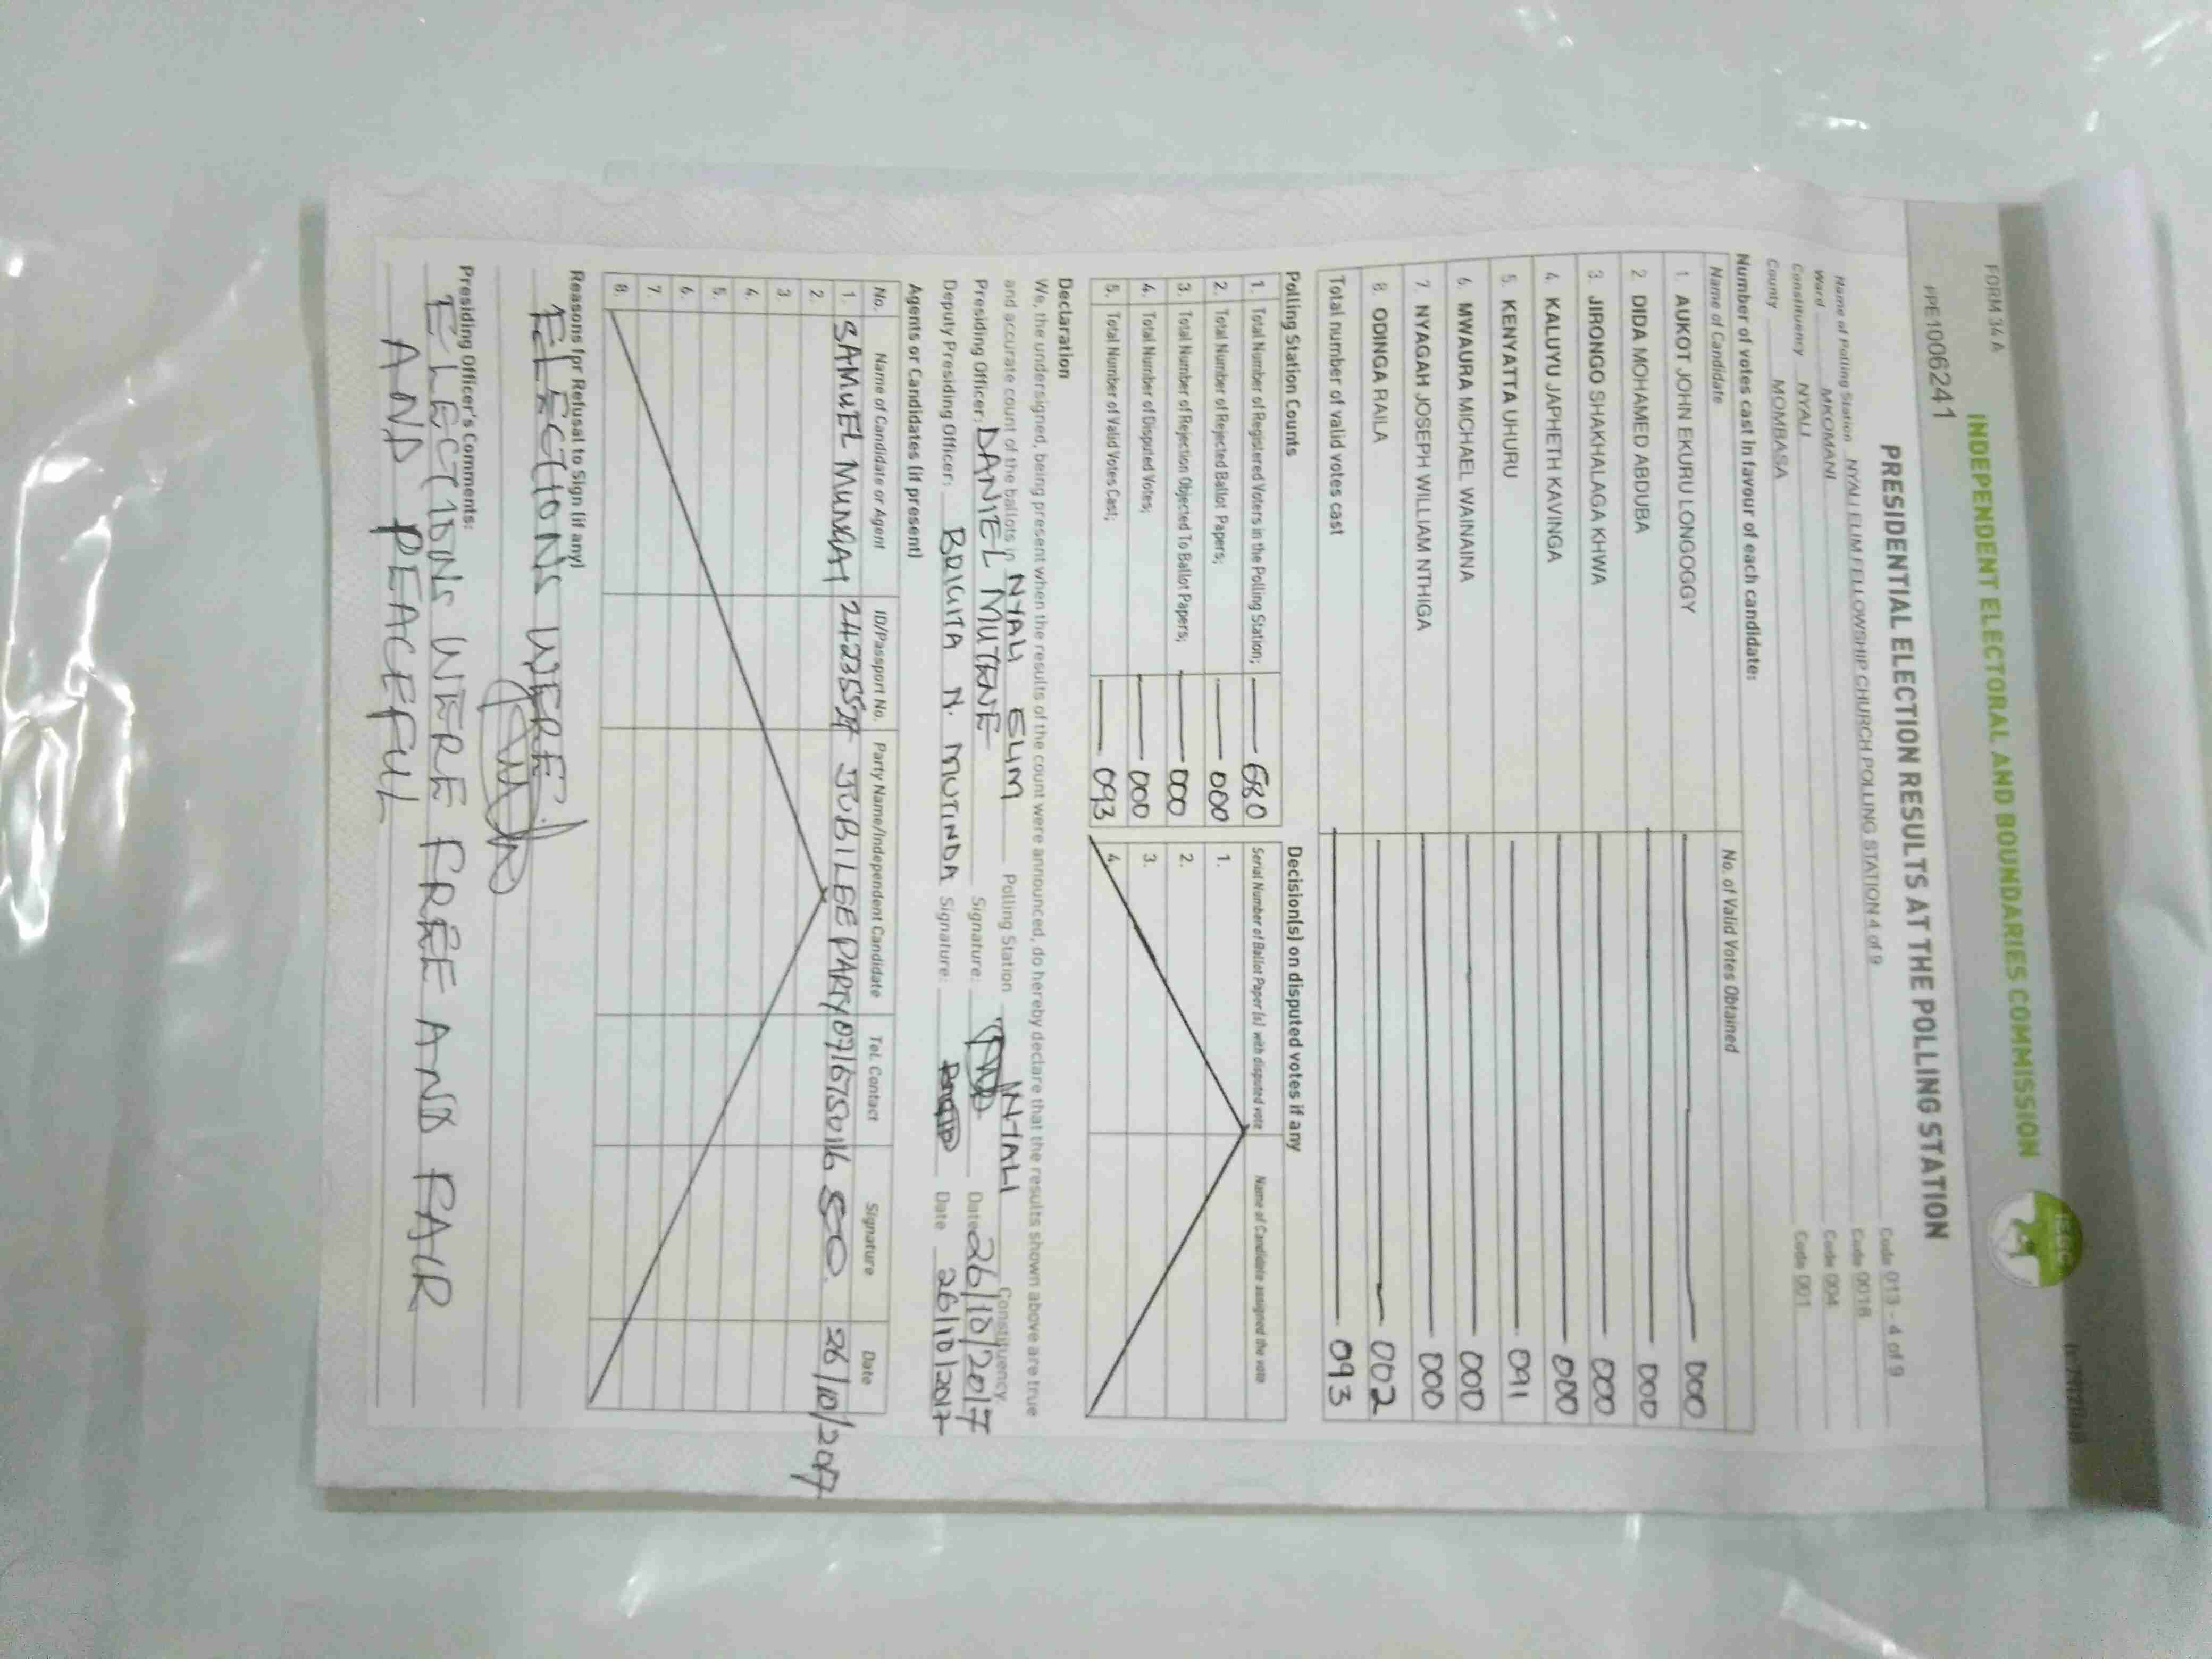 FORM 34 A
INDEPENDENT ELECTORAL AND BOUNDARIES COMMISSION
IEBC
PPE1006241
PRESIDENTIAL ELECTION RESULTS AT THE POLLING STATION
Name of Polling Station NYALI ELIM FELLOWSHIP CHURCH POLLING STATION 4 of 9 Code 013 - 4 of 9
Ward MKOMANI Code 0016
Constituency NYALI Code 004
County MOMBASA Code 001
Number of votes cast in favour of each candidate:
Name of Candidate No. of Valid Votes Obtained
1. AUKOT JOHN EKURU LONGOGGY 000
2. DIDA MOHAMED ABDUBA 000
3. JIRONGO SHAKHALAGA KHWA 000
4. KALUYU JAPHETH KAVINGA 000
5. KENYATTA UHURU 091
6. MWAURA MICHAEL WAINAINA 000
7. NYAGAH JOSEPH WILLIAM NTHIGA 000
8. ODINGA RAILA 002
Total number of valid votes cast 093
Polling Station Counts Decision(s) on disputed votes if any
1. Total Number of Registered Voters in the Polling Station; 680 Serial Number of Ballot Paper (s) with disputed vote Name of Candidate assigned the vote
2. Total Number of Rejected Ballot Papers; 000 1.
3. Total Number of Rejection Objected To Ballot Papers; 000 2.
4. Total Number of Disputed Votes; 000 3.
5. Total Number of Valid Votes Cast; 093 4.
Declaration
We, the undersigned, being present when the results of the count were announced, do hereby declare that the results shown above are true
and accurate count of the ballots in NYALI ELIM Polling Station NYALI Constituency.
Presiding Officer: DANIEL MUTENE Signature: Date 26/10/2017
Deputy Presiding Officer: BRIGITA N. MUTINDA Signature: Date 26/10/2017
Agents or Candidates (if present)
No. Name of Candidate or Agent ID/Passport No. Party Name/Independent Candidate Tel. Contact Signature Date
1. SAMUEL MUNGAI JUBILEE PARTY 26/10/2017
2.
3.
4.
5.
6.
7.
8.
Reasons for Refusal to Sign (if any)
ELECTIONS WERE
Presiding Officer's Comments:
ELECTIONS WERE FREE AND FAIR
AND PEACEFUL